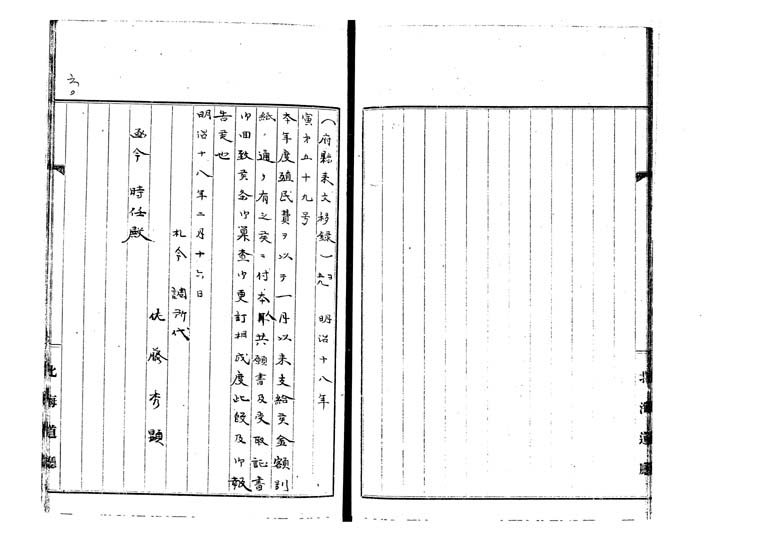 （府縣来文移録）一 明治十八年
寅才五十九号
本年度殖民費ヲ以テ一月以来支給候金額別
紙、通り有之候ニ付本県共願書及受取証書
御回致候条御稟査御更訂相成度此段及御報
告候也
明治十八年二月十六日
札令 調所代
佐藤秀顕
函令 時任殿
六。
北海道廳
北海道廳